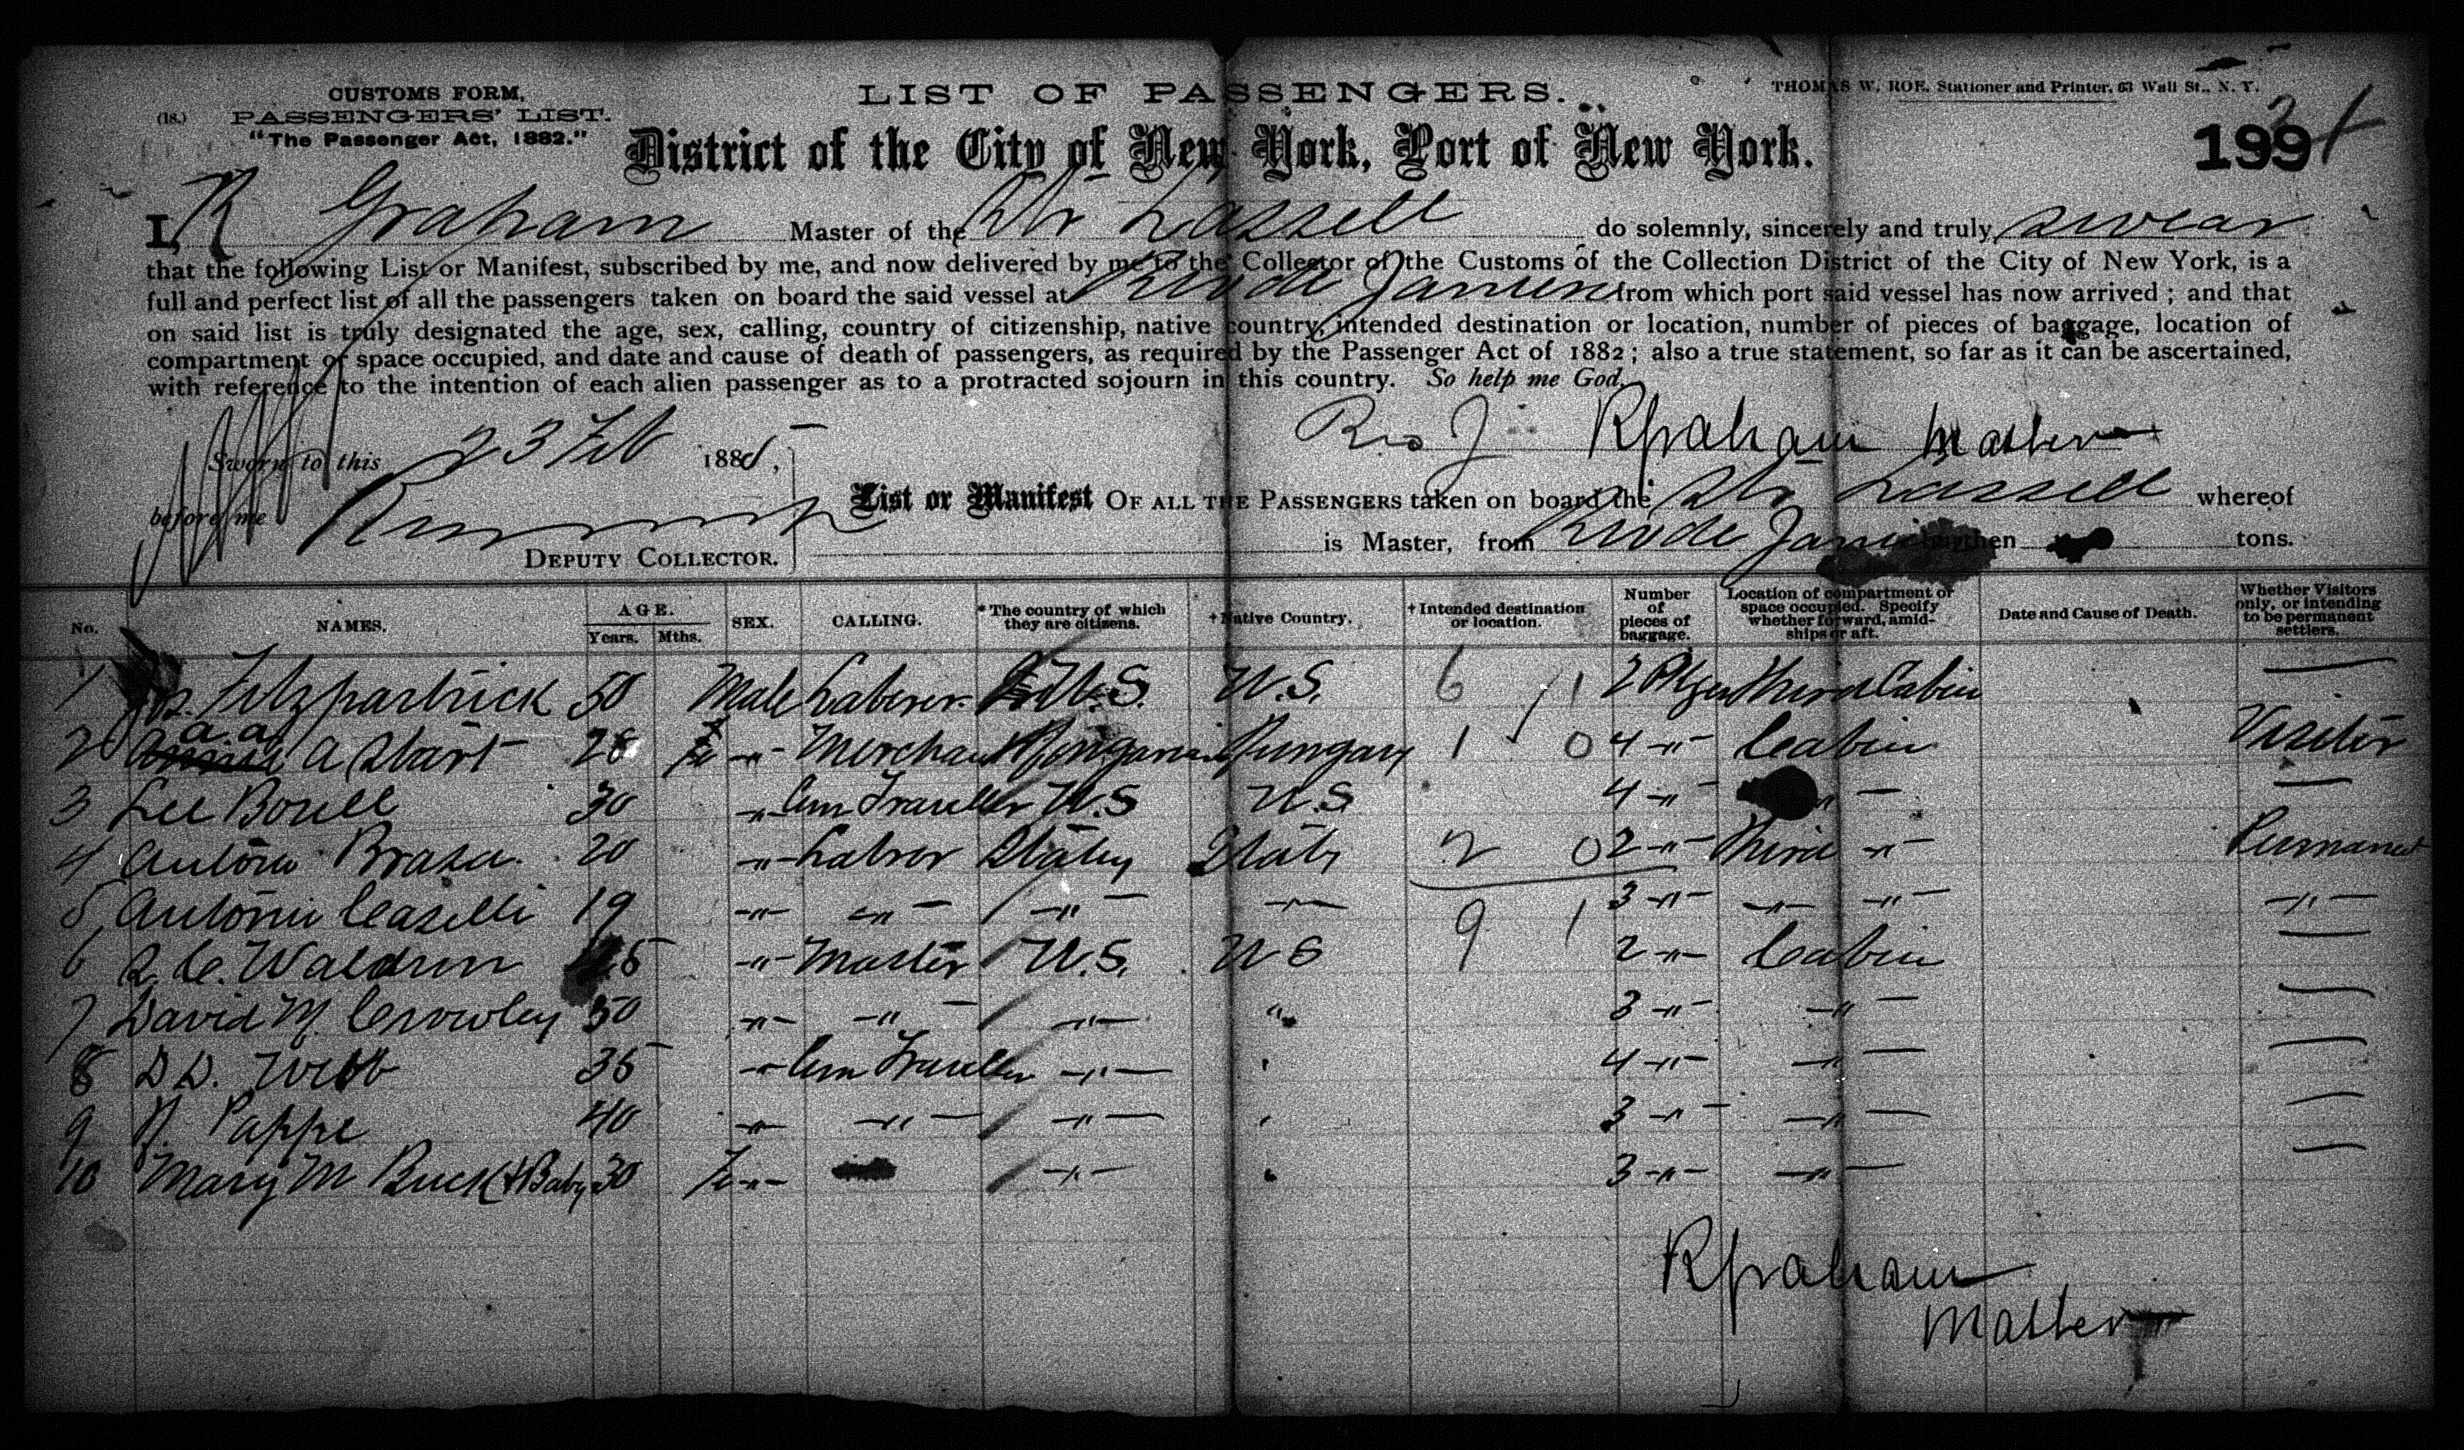 CUSTOMS FORM,
(18.) PASSENGERS' LIST.
"The Passenger Act, 1882."
LIST OF PASSENGERS.
THOMAS W. ROE, Stationer and Printer, 63 Wall St., N. Y.
District of the City of New York, Port of New York.
199
I, R Graham Master of the Str Lassell do solemnly, sincerely and truly swear
that the following List or Manifest, subscribed by me, and now delivered by me to the Collector of the Customs of the Collection District of the City of New York, is a
full and perfect list of all the passengers taken on board the said vessel at Rio de Janeiro from which port said vessel has now arrived; and that
on said list is truly designated the age, sex, calling, country of citizenship, native country, intended destination or location, number of pieces of baggage, location of
compartment or space occupied, and date and cause of death of passengers, as required by the Passenger Act of 1882; also a true statement, so far as it can be ascertained,
with reference to the intention of each alien passenger as to a protracted sojourn in this country. So help me God.
Rio J RGraham Master
Sworn to this 23 Feb 188
before me
DEPUTY COLLECTOR.
List or Manifest OF ALL THE PASSENGERS taken on board the Str Lassell whereof
is Master, from Rio de Janeiro burthen tons.
No. NAMES. AGE. Years. Mths. SEX. CALLING. * The country of which they are citizens. † Native Country. † Intended destination or location. Number of pieces of baggage. Location of compartment or space occupied. Specify whether forward, amidships or aft. Date and Cause of Death. Whether Visitors only, or intending to be permanent settlers.
1 Fitzpartrick 50 Male Laberer U.S. U.S. 6 1 2 Third Cabin —
2 a.a. A Start 28 -"- Merchant Hungary 1 0 4 -"- Cabin Visitor
3 Lee Bouell 30 -"- Com Traveller U.S U.S 4 -"- -"- —
4 Antonio Brasa 20 -"- Labror Italy Italy 2 0 2 -"- Third -"- Permanent
5 Antonio Caselli 19 -"- -"- -"- -"- 9 1 3 -"- -"- -"- -"-
6 C. Waldron 45 -"- Master U.S. U S 2 -"- Cabin —
7 David M. Crowley 50 -"- -"- -"- " 3 -"- -"- —
8 D D. Webb 35 -"- Com Traveller -"- " 4 -"- -"- —
9 Pappe 40 -"- -"- -"- " 3 -"- -"- —
10 Mary M Buck & Baby 30 Fe -"- " 3 -"- -"- —
RGraham
Master